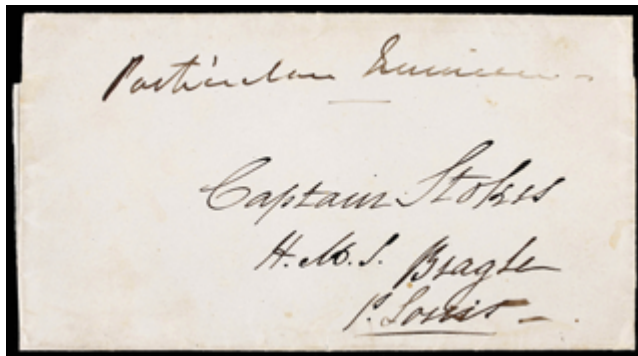 Particular Service
Captain Stokes
H.M.S. Beagle
P. Louis